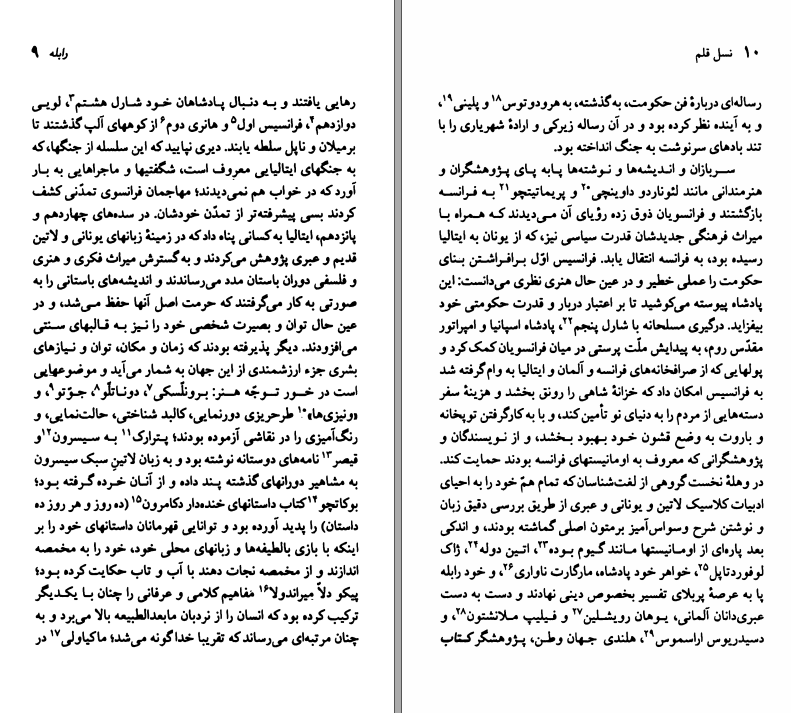 رابله ۹
رهایی یافتند و به دنبال پادشاهان خود شارل هشتم۳، لویی
دوازدهم۴، فرانسیس اول۵ و هانری دوم۶ از کوههای آلپ گذشتند تا
برمیلان و ناپل سلطه یابند. دیری نپایید که این سلسله از جنگها، که
به جنگهای ایتالیایی معروف است، شگفتیها و ماجراهایی به بار
آورد که در خواب هم نمی‌دیدند؛ مهاجمان فرانسوی تمدّنی کشف
کردند بسی پیشرفته‌تر از تمدّن خودشان. در سده‌های چهاردهم و
پانزدهم، ایتالیا به کسانی پناه داد که در زمینهٔ زبانهای یونانی و لاتین
قدیم و عبری پژوهش می‌کردند و به گسترش میراث فکری و هنری
و فلسفی دوران باستان مدد می‌رساندند و اندیشه‌های باستانی را به
صورتی به کار می‌گرفتند که حرمت اصل آنها حفظ می‌شد، و در
عین حال توان و بصیرت شخصی خود را نیز به قالبهای سنتی
می‌افزودند. دیگر پذیرفته بودند که زمان و مکان، توان و نیازهای
بشری جزء ارزشمندی از این جهان به شمار می‌آید و موضوعهایی
است در خور توجّه هنر: برونلّسکی۷، دوناتلّو۸، جوّتو۹، و
«ونیزی‌ها»۱۰ طرحریزی دورنمایی، کالبد شناختی، حالت‌نمایی، و
رنگ‌آمیزی را در نقاشی آزموده بودند؛ پترارک۱۱ به سیسرون۱۲و
قیصر۱۳ نامه‌های دوستانه نوشته بود و به زبان لاتینِ سبک سیسرون
به مشاهیر دورانهای گذشته پند داده و از آنان خرده گرفته بود؛
بوکاتچو۱۴کتاب داستانهای خنده‌دار دکامرون۱۵ (ده روز و هر روز ده
داستان) را پدید آورده بود و توانایی قهرمانان داستانهای خود را بر
اینکه با بازی بالطیفه‌ها و زبانهای محلی خود، خود را به مخمصه
اندازند و از مخمصه نجات دهند با آب و تاب حکایت کرده بود؛
پیکو دلاّ میراندولا۱۶ مفاهیم کلامی و عرفانی را چنان با یکدیگر
ترکیب کرده بود که انسان را از نردبان مابعدالطبیعه بالا می‌برد و به
چنان مرتبه‌ای می‌رساند که تقریبا خداگونه می‌شد؛ ماکیاولی۱۷ در
۱۰ نسل قلم
رساله‌ای دربارهٔ فن حکومت، به گذشته، به هرودوتوس۱۸ و پلینی۱۹،
و به آینده نظر کرده بود و در آن رساله زیرکی و ارادهٔ شهریاری را با
تند بادهای سرنوشت به جنگ انداخته بود.
سربازان و اندیشه‌ها و نوشته‌ها پابه پای پژوهشگران و
هنرمندانی مانند لئوناردو داوینچی۲۰ و پریماتیتچو۲۱ به فرانسه
بازگشتند و فرانسویان ذوق زده رؤیای آن می‌دیدند که همراه با
میراث فرهنگی جدیدشان قدرت سیاسی نیز، که از یونان به ایتالیا
رسیده بود، به فرانسه انتقال یابد. فرانسیس اوّل برافراشتن بنای
حکومت را عملی خطیر و در عین حال هنری نظری می‌دانست: این
پادشاه پیوسته می‌کوشید تا بر اعتبار دربار و قدرت حکومتی خود
بیفزاید. درگیری مسلحانه با شارل پنجم۲۲، پادشاه اسپانیا و امپراتور
مقدّس روم، به پیدایش ملّت پرستی در میان فرانسویان کمک کرد و
پولهایی که از صرافخانه‌های فرانسه و آلمان و ایتالیا به وام گرفته شد
به فرانسیس امکان داد که خزانهٔ شاهی را رونق بخشد و هزینهٔ سفر
دسته‌هایی از مردم را به دنیای نو تأمین کند، و با به کارگرفتن توپخانه
و باروت به وضع قشون خود بهبود بخشد، و از نویسندگان و
پژوهشگرانی که معروف به اومانیستهای فرانسه بودند حمایت کند.
در وهلهٔ نخست گروهی از لغت‌شناسان که تمام همّ خود را به احیای
ادبیات کلاسیک لاتین و یونانی و عبری از طریق بررسی دقیق زبان
و نوشتن شرح وسواس‌آمیز برمتون اصلی گماشته بودند، و اندکی
بعد پاره‌ای از اومانیستها مانند گیوم بوده۲۳، اتین دوله۲۴، ژاک
لوفوردتاپل۲۵، خواهر خود پادشاه، مارگارت ناواری۲۶، و خود رابله
پا به عرصهٔ پربلای تفسیر بخصوص دینی نهادند و دست به دست
عبری‌دانان آلمانی، یوهان رویشلین۲۷ و فیلیپ ملانشتون۲۸، و
دسیدریوس اراسموس۲۹، هلندی جهان وطن، پژوهشگر کتاب